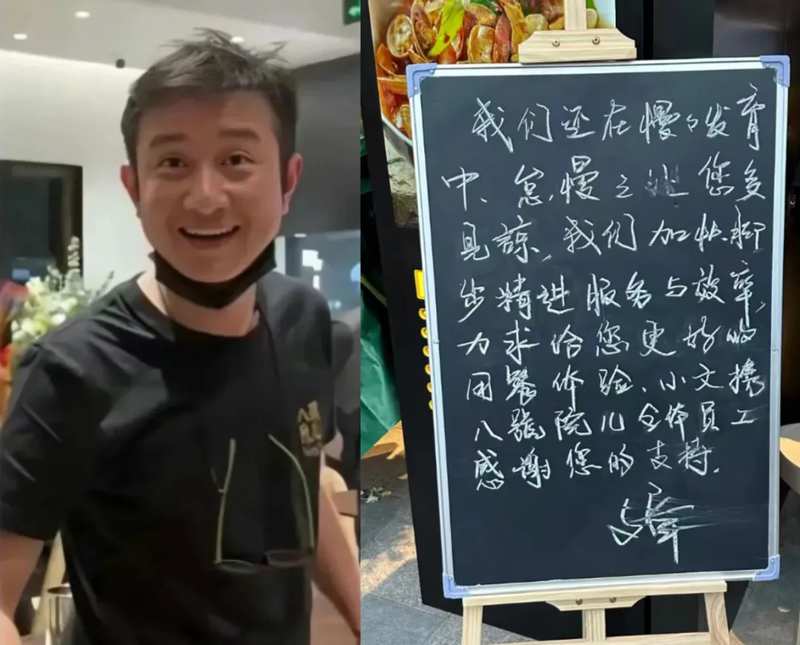 我们还在慢々发育
中、怠慢之处您多
见谅,我们加快脚
步精进服务与效率,
力求给您更好的
用餐体验、小文携
八號院儿全体员工
感谢您的支持.